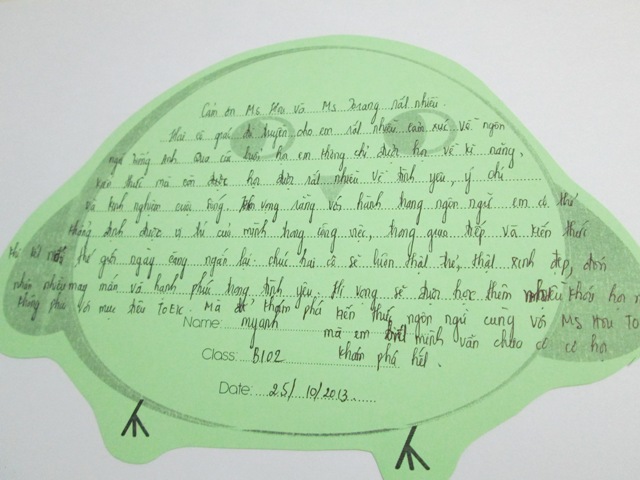 Cảm ơn Ms Hou và Ms Trang rất nhiều.
Hai cô giáo đã truyền cho em rất nhiều cảm xúc về ngôn
ngữ tiếng Anh. Qua các buổi học em không chỉ được học về kĩ năng,
kiến thức mà còn được học được rất nhiều về tình yêu, ý chí
và kinh nghiệm cuộc sống. vọng rằng với hành trang ngôn ngữ em có thể
khẳng định được vị trí của mình trong công việc, trong giao tiếp và kiến thức
thế giới ngày càng ngắn lại. chúc hai cô sẽ luôn thật trẻ, thật xinh đẹp, đón
nhận nhiều may mắn và hạnh phúc trong tình yêu. Hi vọng sẽ được học thêm nhiều khóa học
không phải với mục tiêu TOEIC. Mà để khám phá kiến thức ngôn ngữ cùng với Ms Hou
Name: myanh mà em biết mình vẫn chưa có cơ hội
Class: B102 khám phá hết.
Date: 25/10/2013